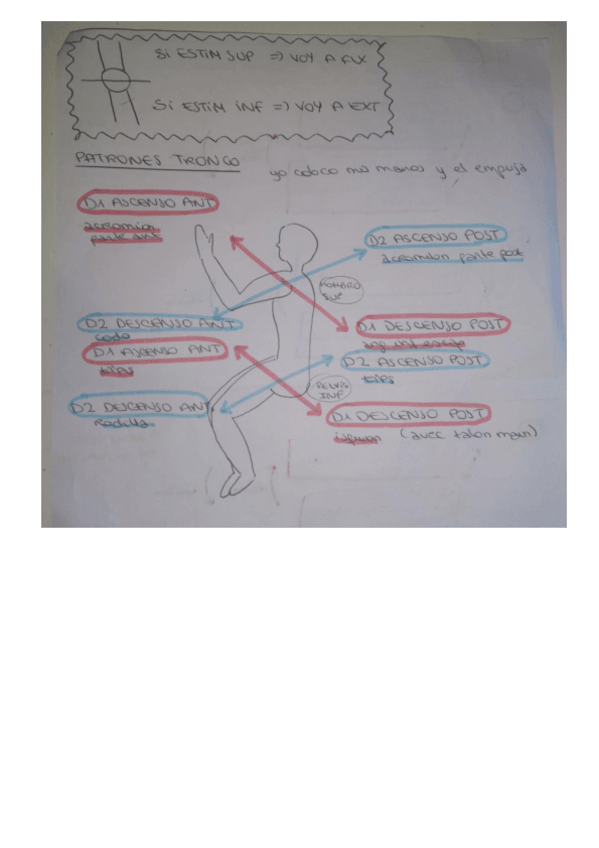 Si ESTIM SUP => VOY A FLX
Si ESTIM INF => VOY A EXT
PATRONES TRONCO
yo coloco mis manos y el empuja
D1 ASCENSO ANT
acromion
parte ant
D2 ASCENSO POST
acromion parte post
HOMBRO
SUP
D2 DESCENSO ANT
codo
D1 DESCENSO POST
ang inf escap
D1 ASCENSO ANT
EIAS
D2 ASCENSO POST
EIPS
PELVIS
INF
D2 DESCENSO ANT
Rodilla
D1 DESCENSO POST
isquion (avec talon main)